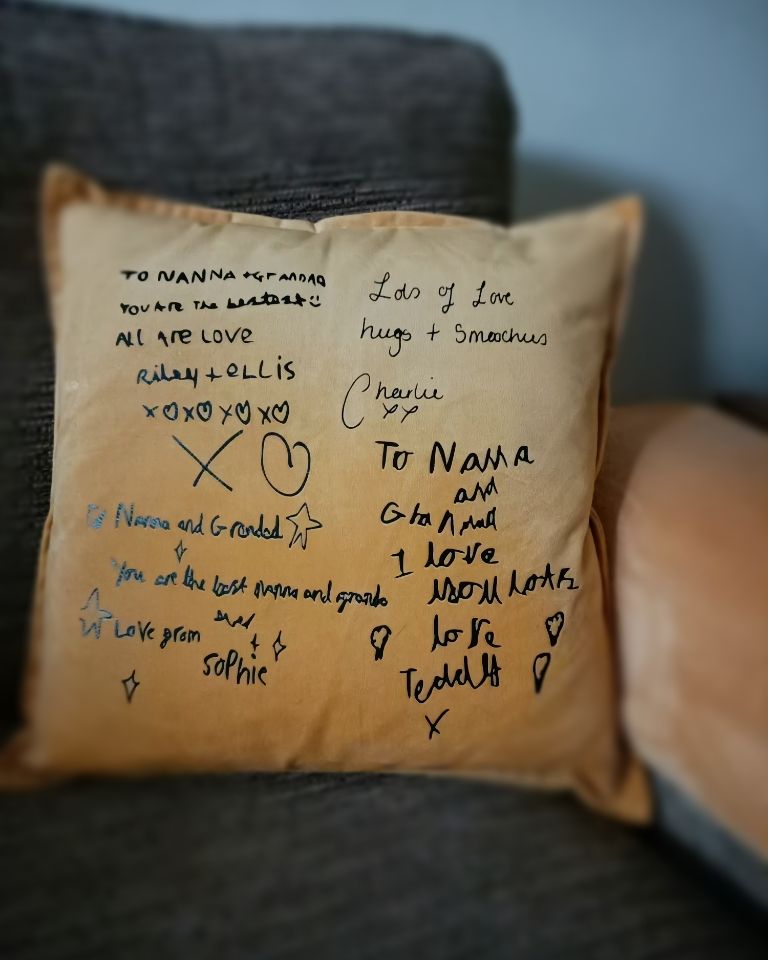 TO NANNA + GrANDAD
YOU ARE THE bestest
All Are LOVE
Riley + eLLIS
x x x x
X
To Nanna and Grandad
You are the best nanna and granda
Love from
SoPhie
Lots of Love
hugs + Smoochus
Charlie
xx
To Nana
and
GraNdad
I love
you Lots
love
Teddy
x